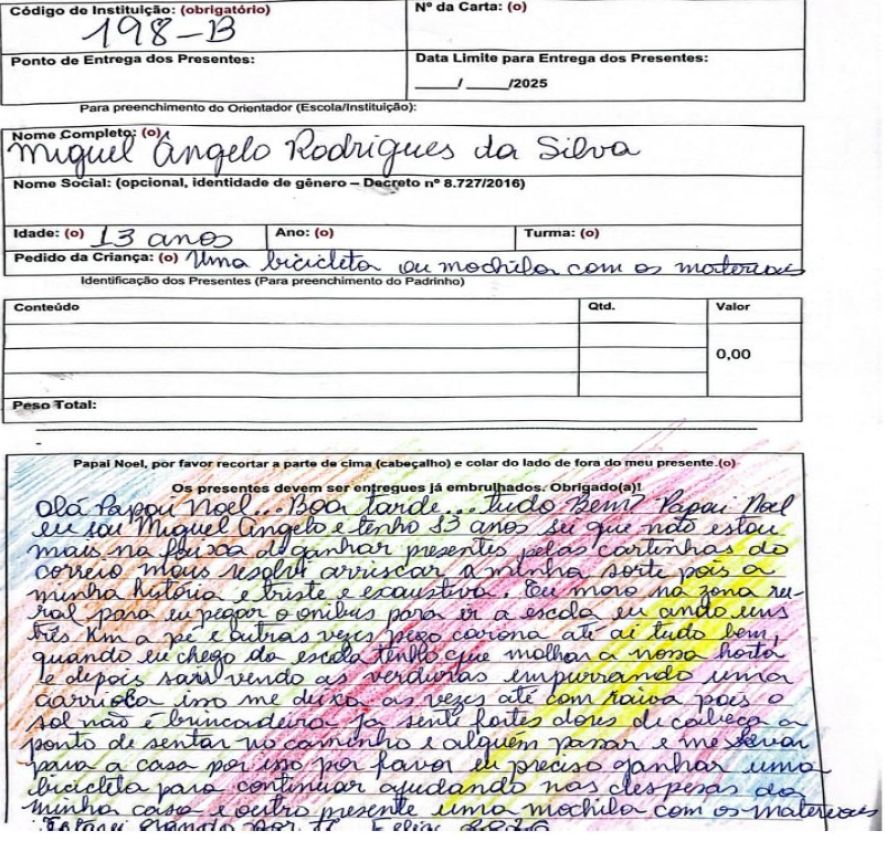 Código de Instituição: (obrigatório)
198-B
Nº da Carta: (o)
Ponto de Entrega dos Presentes:
Data Limite para Entrega dos Presentes:
____/ ____/2025
Para preenchimento do Orientador (Escola/Instituição):
Nome Completo: (o)
Miguel Ângelo Rodrigues da Silva
Nome Social: (opcional, identidade de gênero – Decreto nº 8.727/2016)
Idade: (o) 13 anos
Ano: (o)
Turma: (o)
Pedido da Criança: (o) Uma bicicleta ou mochila com os materiais
Identificação dos Presentes (Para preenchimento do Padrinho)
Conteúdo
Qtd.
Valor
0,00
Peso Total:
Papai Noel, por favor recortar a parte de cima (cabeçalho) e colar do lado de fora do meu presente.(o)
Os presentes devem ser entregues já embrulhados. Obrigado(a)!
Olá Papai Noel... Boa tarde... tudo Bem? Papai Noel
eu sou Miguel Ângelo e tenho 13 anos sei que não estou
mais na faixa de ganhar presentes pelas cartinhas do
correio mais resolvi arriscar a minha sorte pois a
minha história é triste e exaustiva. Eu moro na zona ru-
ral para eu pegar o onibus para ir a escola eu ando uns
três Km a pé e outras vezes pego carona até ai tudo bem,
quando eu chego da escola tenho que molhar a nossa horta
e depois sair vendo as verduras empurrando uma
carriola isso me deixa as vezes até com raiva pois o
sol não é brincadeira já senti fortes dores de cabeça a
ponto de sentar no caminho e alguém passar e me levar
para a casa por isso por favor eu preciso ganhar uma
bicicleta para continuar ajudando nas despesas da
minha casa e outro presente uma mochila com os materiais